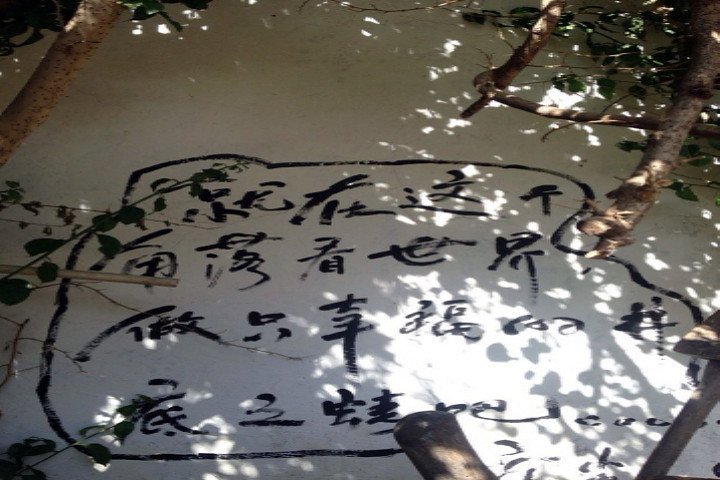 就在这个
角落看世界,
做只幸福的井
底之蛙吧!。。。。。